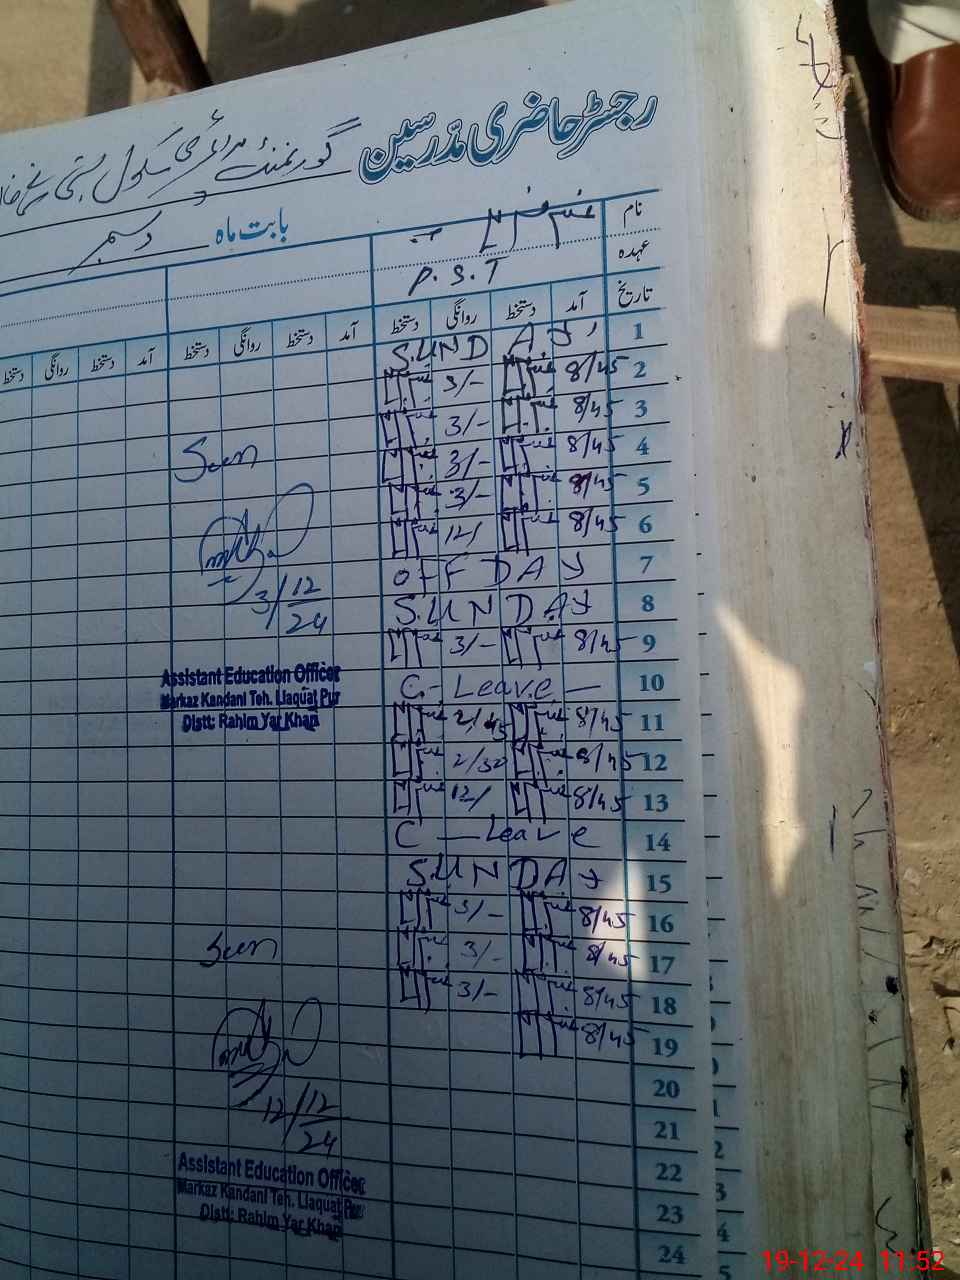 رجسٹر حاضری مدرسین گورنمنٹ پرائمری سکول بستی
بابت ماہ دسمبر
نام
عہدہ P.S.T
تاریخ آمد دستخط روانگی دستخط آمد دستخط روانگی دستخط آمد دستخط روانگی دستخط
1 SUNDAY
2 8/45 3/-
3 8/45 3/-
4 8/45 3/-
5 8/45 3/-
6 8/45 12/
7 OFF DAY
8 SUNDAY
9 8/45 3/-
10 C- Leave -
11 8/45 2/45
12 8/45 2/30
13 8/45 12/
14 C - Leave
15 SUNDAY
16 8/45 3/-
17 8/45 3/-
18 8/45 3/-
19 8/45
20
21
22
23
24
Seen
3/12/24
Assistant Education Officer
Markaz Kandani Teh. Liaquat Pur
Distt: Rahim Yar Khan
Seen
12/12/24
Assistant Education Officer
Markaz Kandani Teh. Liaquat Pur
Distt: Rahim Yar Khan
19-12-24 11:52